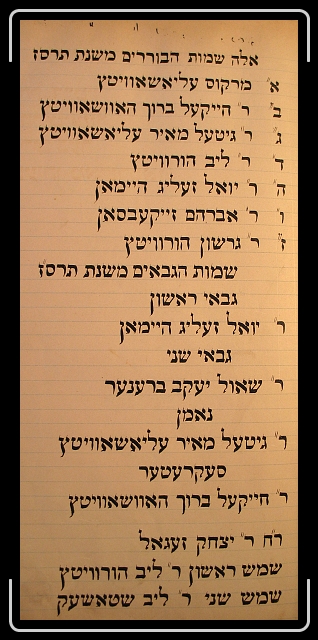 אלה שמות הבוררים משנת תרסז
א" מרקוס עליאשאוויטץ
ב" ר" הייקעל ברוך האוושאוויטץ
ג" ר" גיטעל מאיר עליאשאוויטץ
ד" ר" ליב הורוויטץ
ה" ר" יואל זעליג היימאן
ו" ר" אברהם זייקעבסאן
ז" ר" גרשון הורוויטץ
שמות הגבאים משנת תרס"ז
גבאי ראשון
ר" יואל זעליג היימאן
גבאי שני
ר" שאול יעקב ברענער
נאמן
ר" גיטעל מאיר עליאשאוויטץ
סעקרעטער
ר" חייקעל ברוך האוושאוויטץ
ר"ח ר" יצחק זעגאל
שמש ראשון ר" ליב הורוויטץ
שמש שני ר" ליב שטאשעק